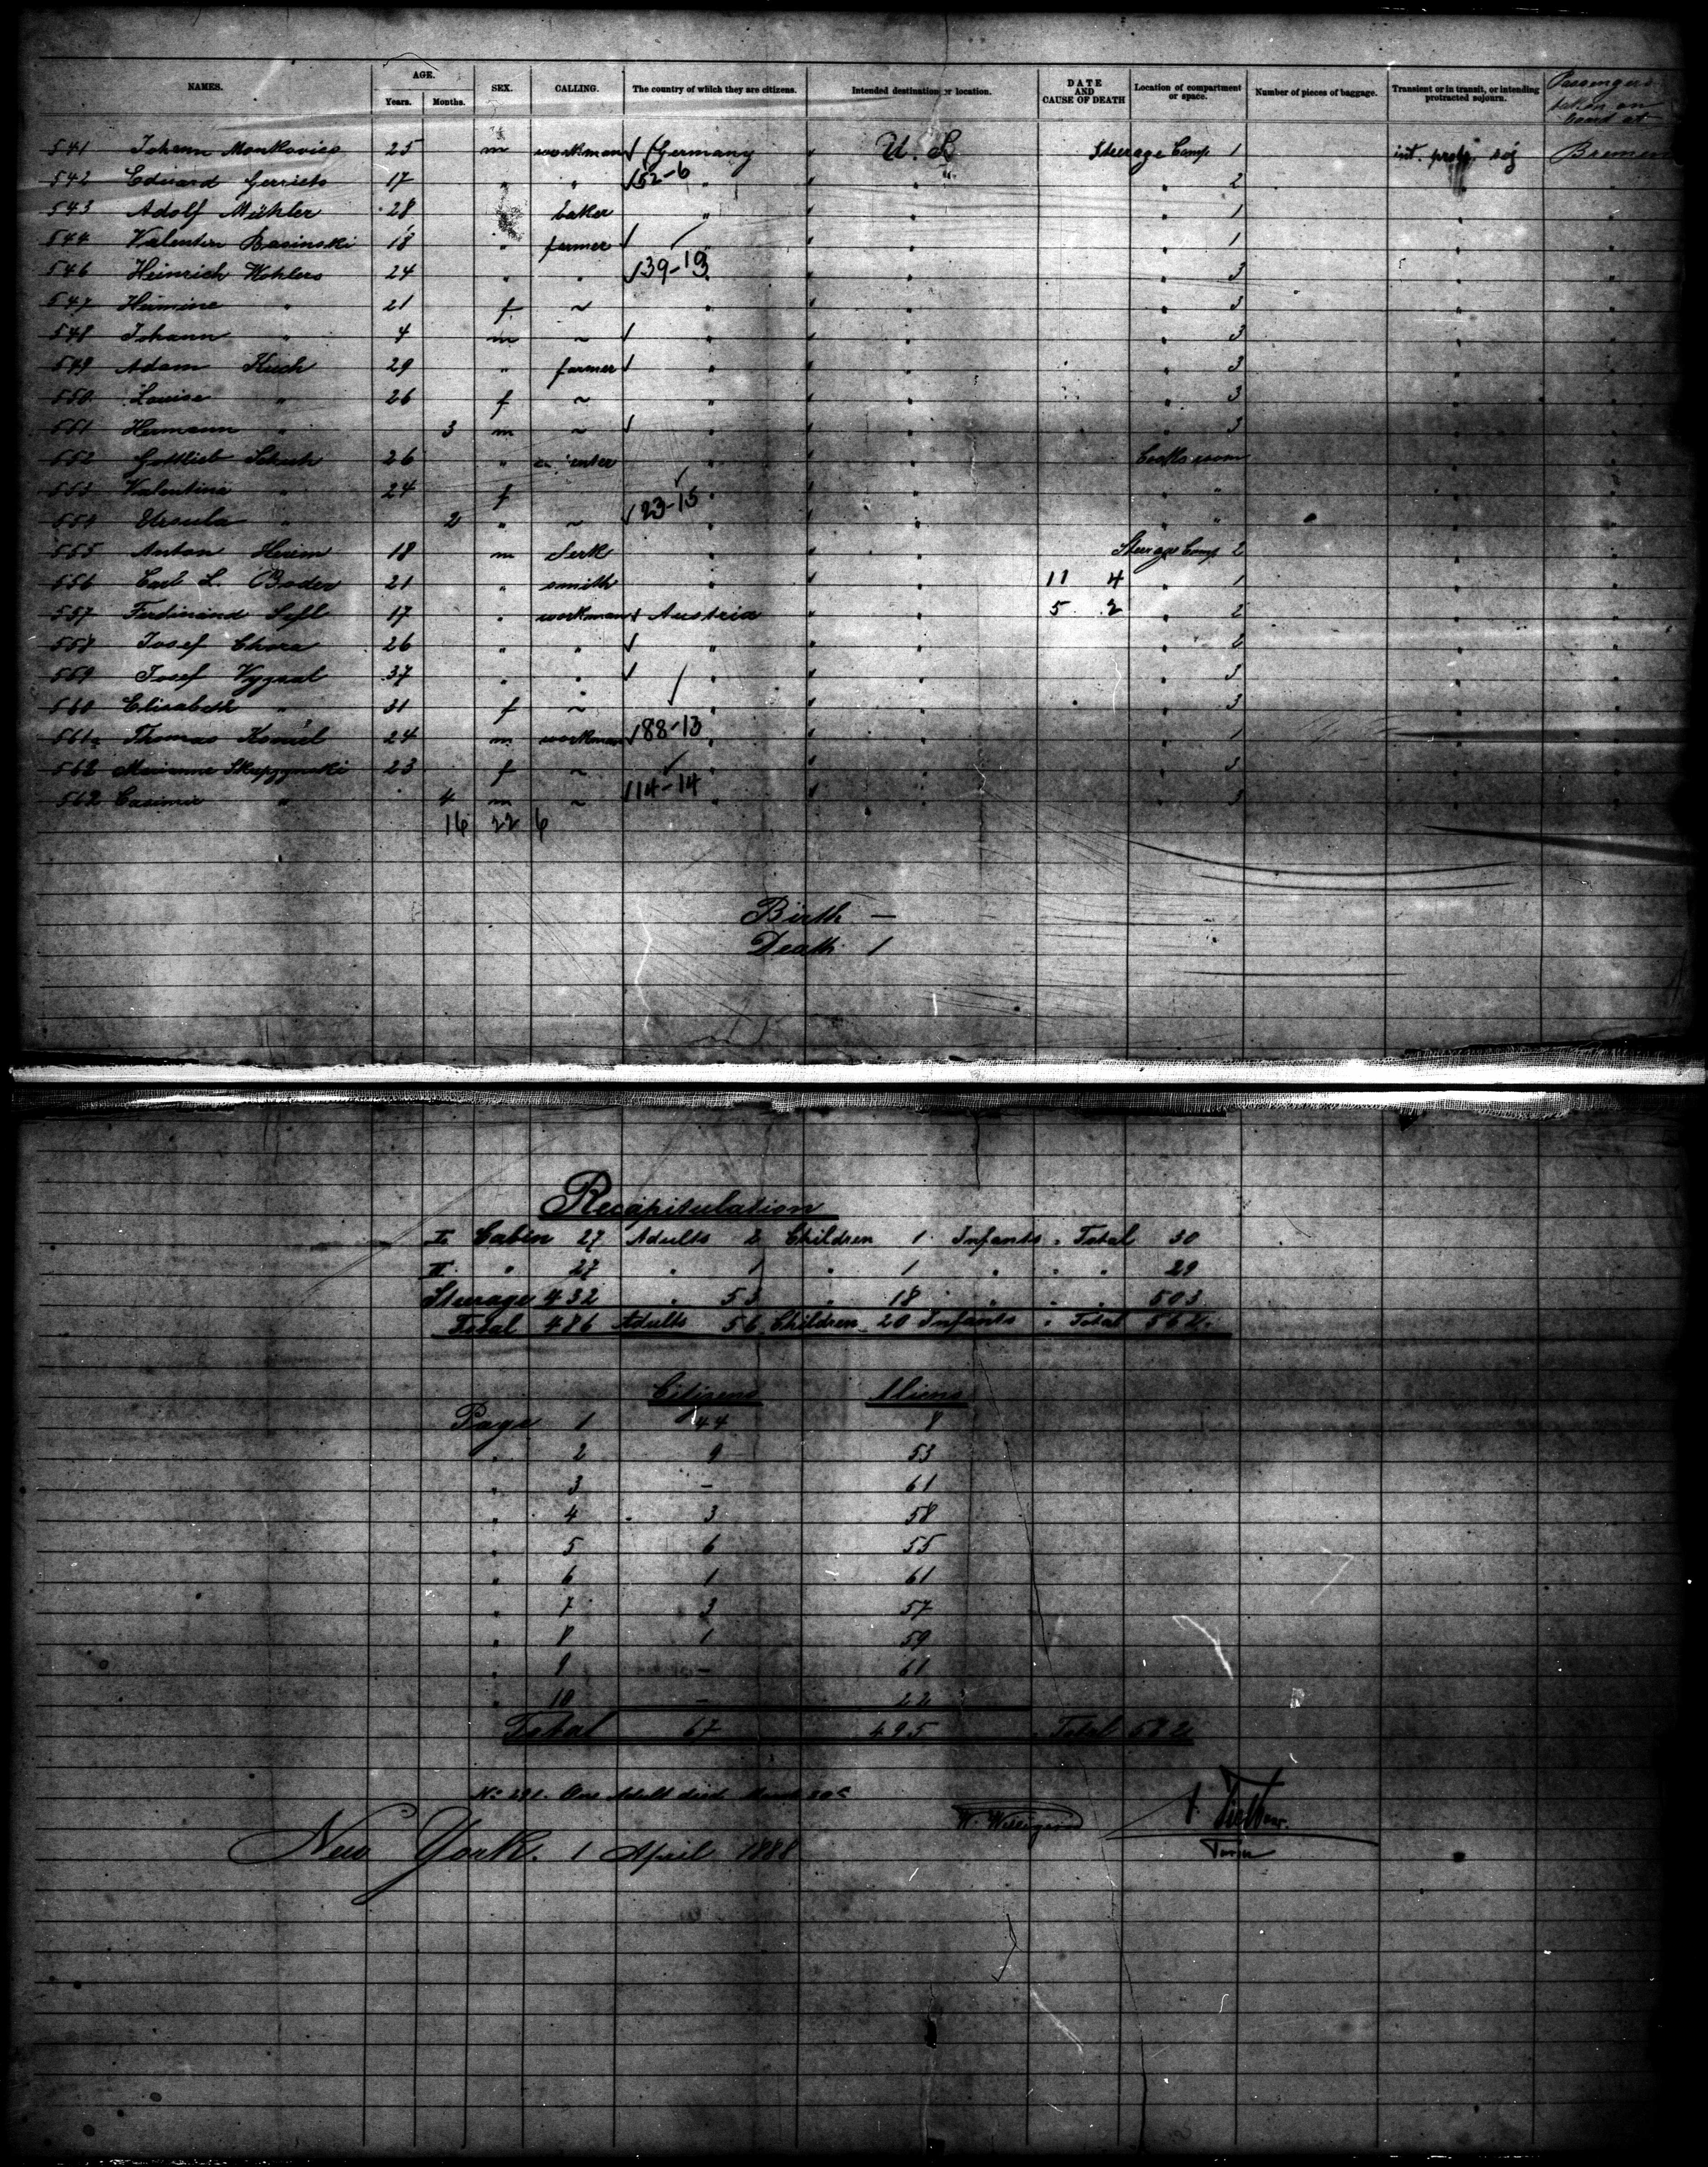 NAMES. AGE. Years. Months. SEX. CALLING. The country of which they are citizens. Intended destination or location. DATE AND CAUSE OF DEATH Location of compartment or space. Number of pieces of baggage. Transient or in transit, or intending protracted sojourn. Passengers taken on board at
541 Johann 25 m workman Germany U. S. Steerage Comp 1 int. protr. soj Bremen
542 Eduard Gerriets 17 " " 52-6 " " " 2 " "
543 Adolf Mühler 28 " baker " " " 1 " "
544 Valentin Basinski 18 " farmer " " " 1 " "
546 Heinrich Wohlers 24 " " 139-19 " " " 3 " "
547 Hermine " 21 f ~ " " " 3 " "
548 Johann " 4 m ~ " " " 3 " "
549 Adam Kuch 29 " farmer " " " 3 " "
550 Louise " 26 f ~ " " " 3 " "
551 Hermann " 3 m ~ " " " 3 " "
552 Gottlieb 26 " " " " room "
553 Valentine " 24 f " " " " " "
554 Ursula " 2 " ~ 123-15 " " " " " "
555 Anton 18 m clerk " " Steerage Comp 2 " "
556 Carl L. Bader 21 " smith " " 11 4 " 1 " "
557 Ferdinand 17 " workman Austria " " 5 2 " 2 " "
558 Josef Chora 26 " " " " " " 2 " "
559 Josef 37 " " " " " 3 " "
560 Elisabeth " 31 f ~ " " " 3 " "
561 Thomas 24 m workman 188-13 " " " 1 " "
562 Marianne 23 f ~ " " " 3 " "
562 Casimir " 4 m ~ 114-14 " " " 3 " "
16 22 6
Birth —
Death 1
Recapitulation
I. Cabin 27 Adults 2 Children 1 Infants . Total 30
II. " 27 " 1 " 1 " " " 29
Steerage 432 " 53 " 18 " " " 503
Total 486 Adults 56 Children 20 Infants . Total 562.
Citizens Aliens
Page 1 44 8
" 2 9 53
" 3 – 61
" 4 3 58
" 5 6 55
" 6 1 61
" 7 3 57
" 8 1 59
" 9 – 61
" 10 – 22
Total 67 495 . Total 562
One Adult died March
W. Willigerod
New York. 1 April 1888